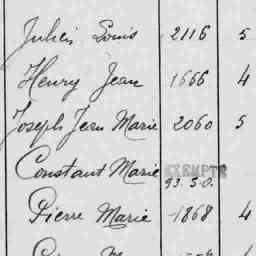 Julien Louis 2116 5
Henry Jean 1666 4
Joseph Jean Marie 2060 5
Constant Marie EXEMPTÉ
93. S.O.
Pierre Marie 1868 4